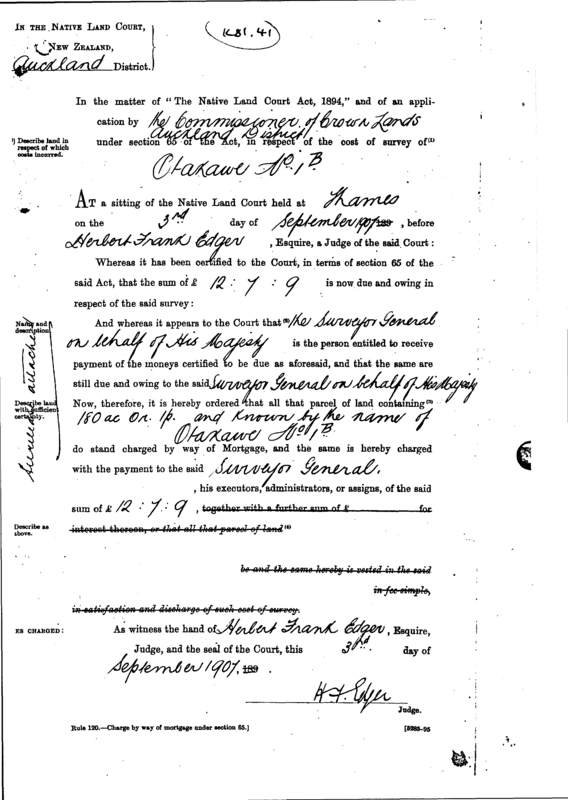 K31.41
IN THE NATIVE LAND COURT,
NEW ZEALAND,
Auckland District.
In the matter of "The Native Land Court Act, 1894," and of an appli-
cation by the Commissioner of Crown Lands
Auckland District
(1) Describe land in respect of which costs incurred.
under section 65 of the Act, in respect of the cost of survey of(1)
Otakawe No. 1B
AT a sitting of the Native Land Court held at Thames
on the 3rd day of September 1907 189 , before
Herbert Frank Edger , Esquire, a Judge of the said Court :
Whereas it has been certified to the Court, in terms of section 65 of the
said Act, that the sum of £ 12 : 7 : 9 is now due and owing in
respect of the said survey :
Name and description.
And whereas it appears to the Court that(2) the Surveyor General
on behalf of His Majesty is the person entitled to receive
payment of the moneys certified to be due as aforesaid, and that the same are
still due and owing to the said Surveyor General on behalf of His Majesty
Describe land with sufficient certainty.
Now, therefore, it is hereby ordered that all that parcel of land containing(3)
180 ac 0r. 1p. and known by the name of
Otakawe No. 1B
do stand charged by way of Mortgage, and the same is hereby charged
with the payment to the said Surveyor General,
, his executors, administrators, or assigns, of the said
sum of £ 12 : 7 : 9 , together with a further sum of £ for
Describe as above.
interest thereon, or that all that parcel of land (4)
be and the same hereby is vested in the said
in fee simple,
in satisfaction and discharge of such cost of survey.
As witness the hand of Herbert Frank Edger , Esquire,
ES CHARGED :
Judge, and the seal of the Court, this 3rd. day of
September 1907, 189 .
H. F. Edger
Judge.
Rule 120.—Charge by way of mortgage under section 65.]
[5285-95
attached